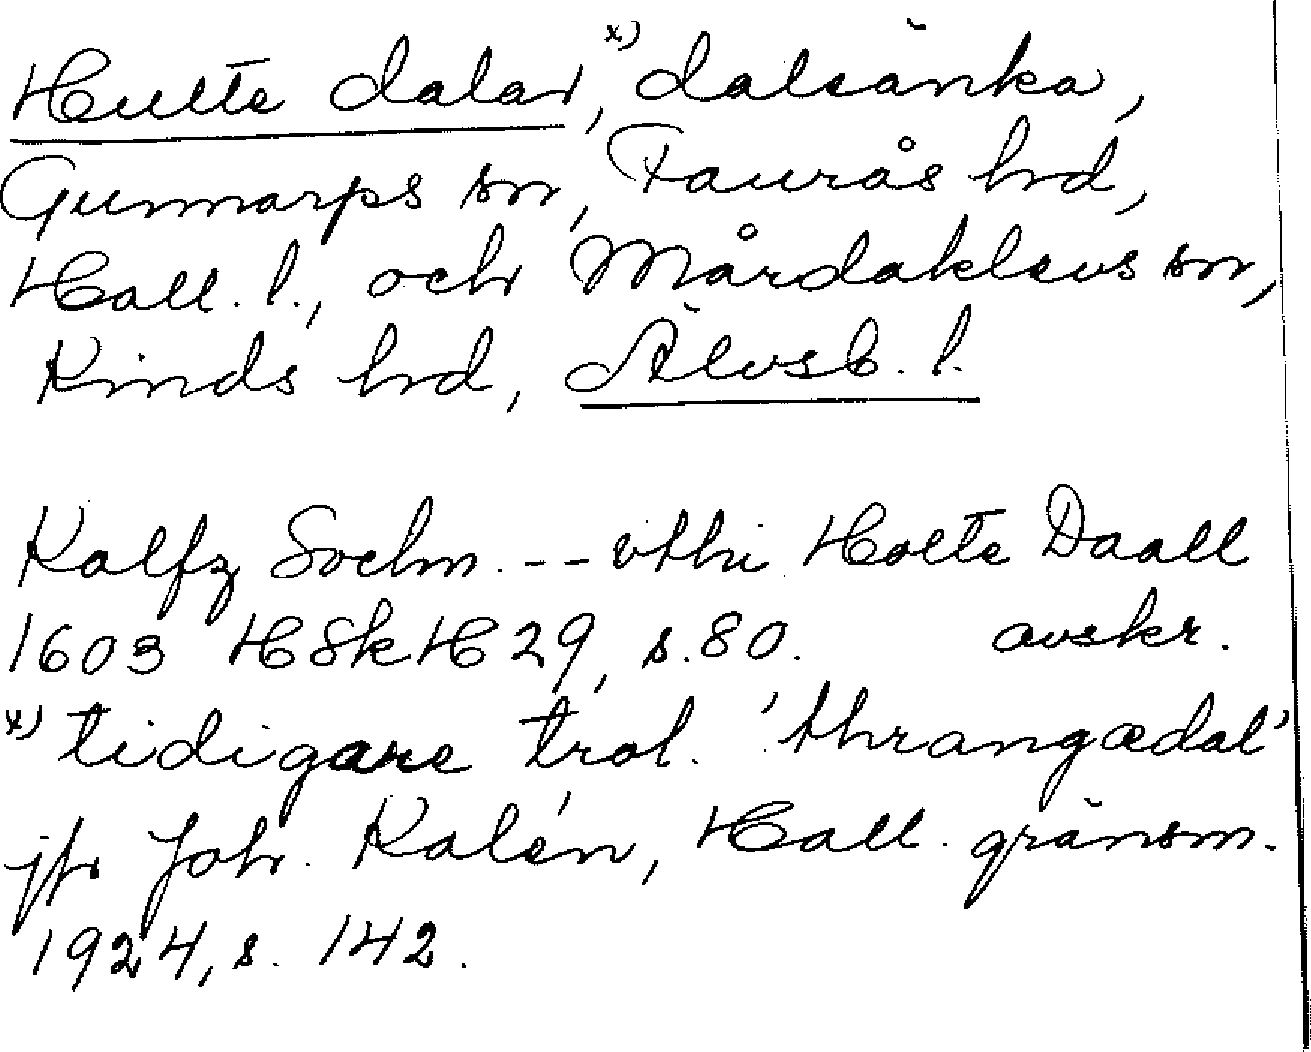 Hulte dalar,ˣ⁾ dalsänka,
Gunnarps sn, Faurås hd,
Hall. l., och Mårdaklevs sn,
Kinds hd, Älvsb. l.
Kalfz Sochn. -- vthi Holte Daall
1603 HSkH 29, s. 80. avskr.
ˣ⁾ tidigare trol. 'thrangædal'
jfr Joh. Kalén, Hall. gränsm.
1924, s. 142.